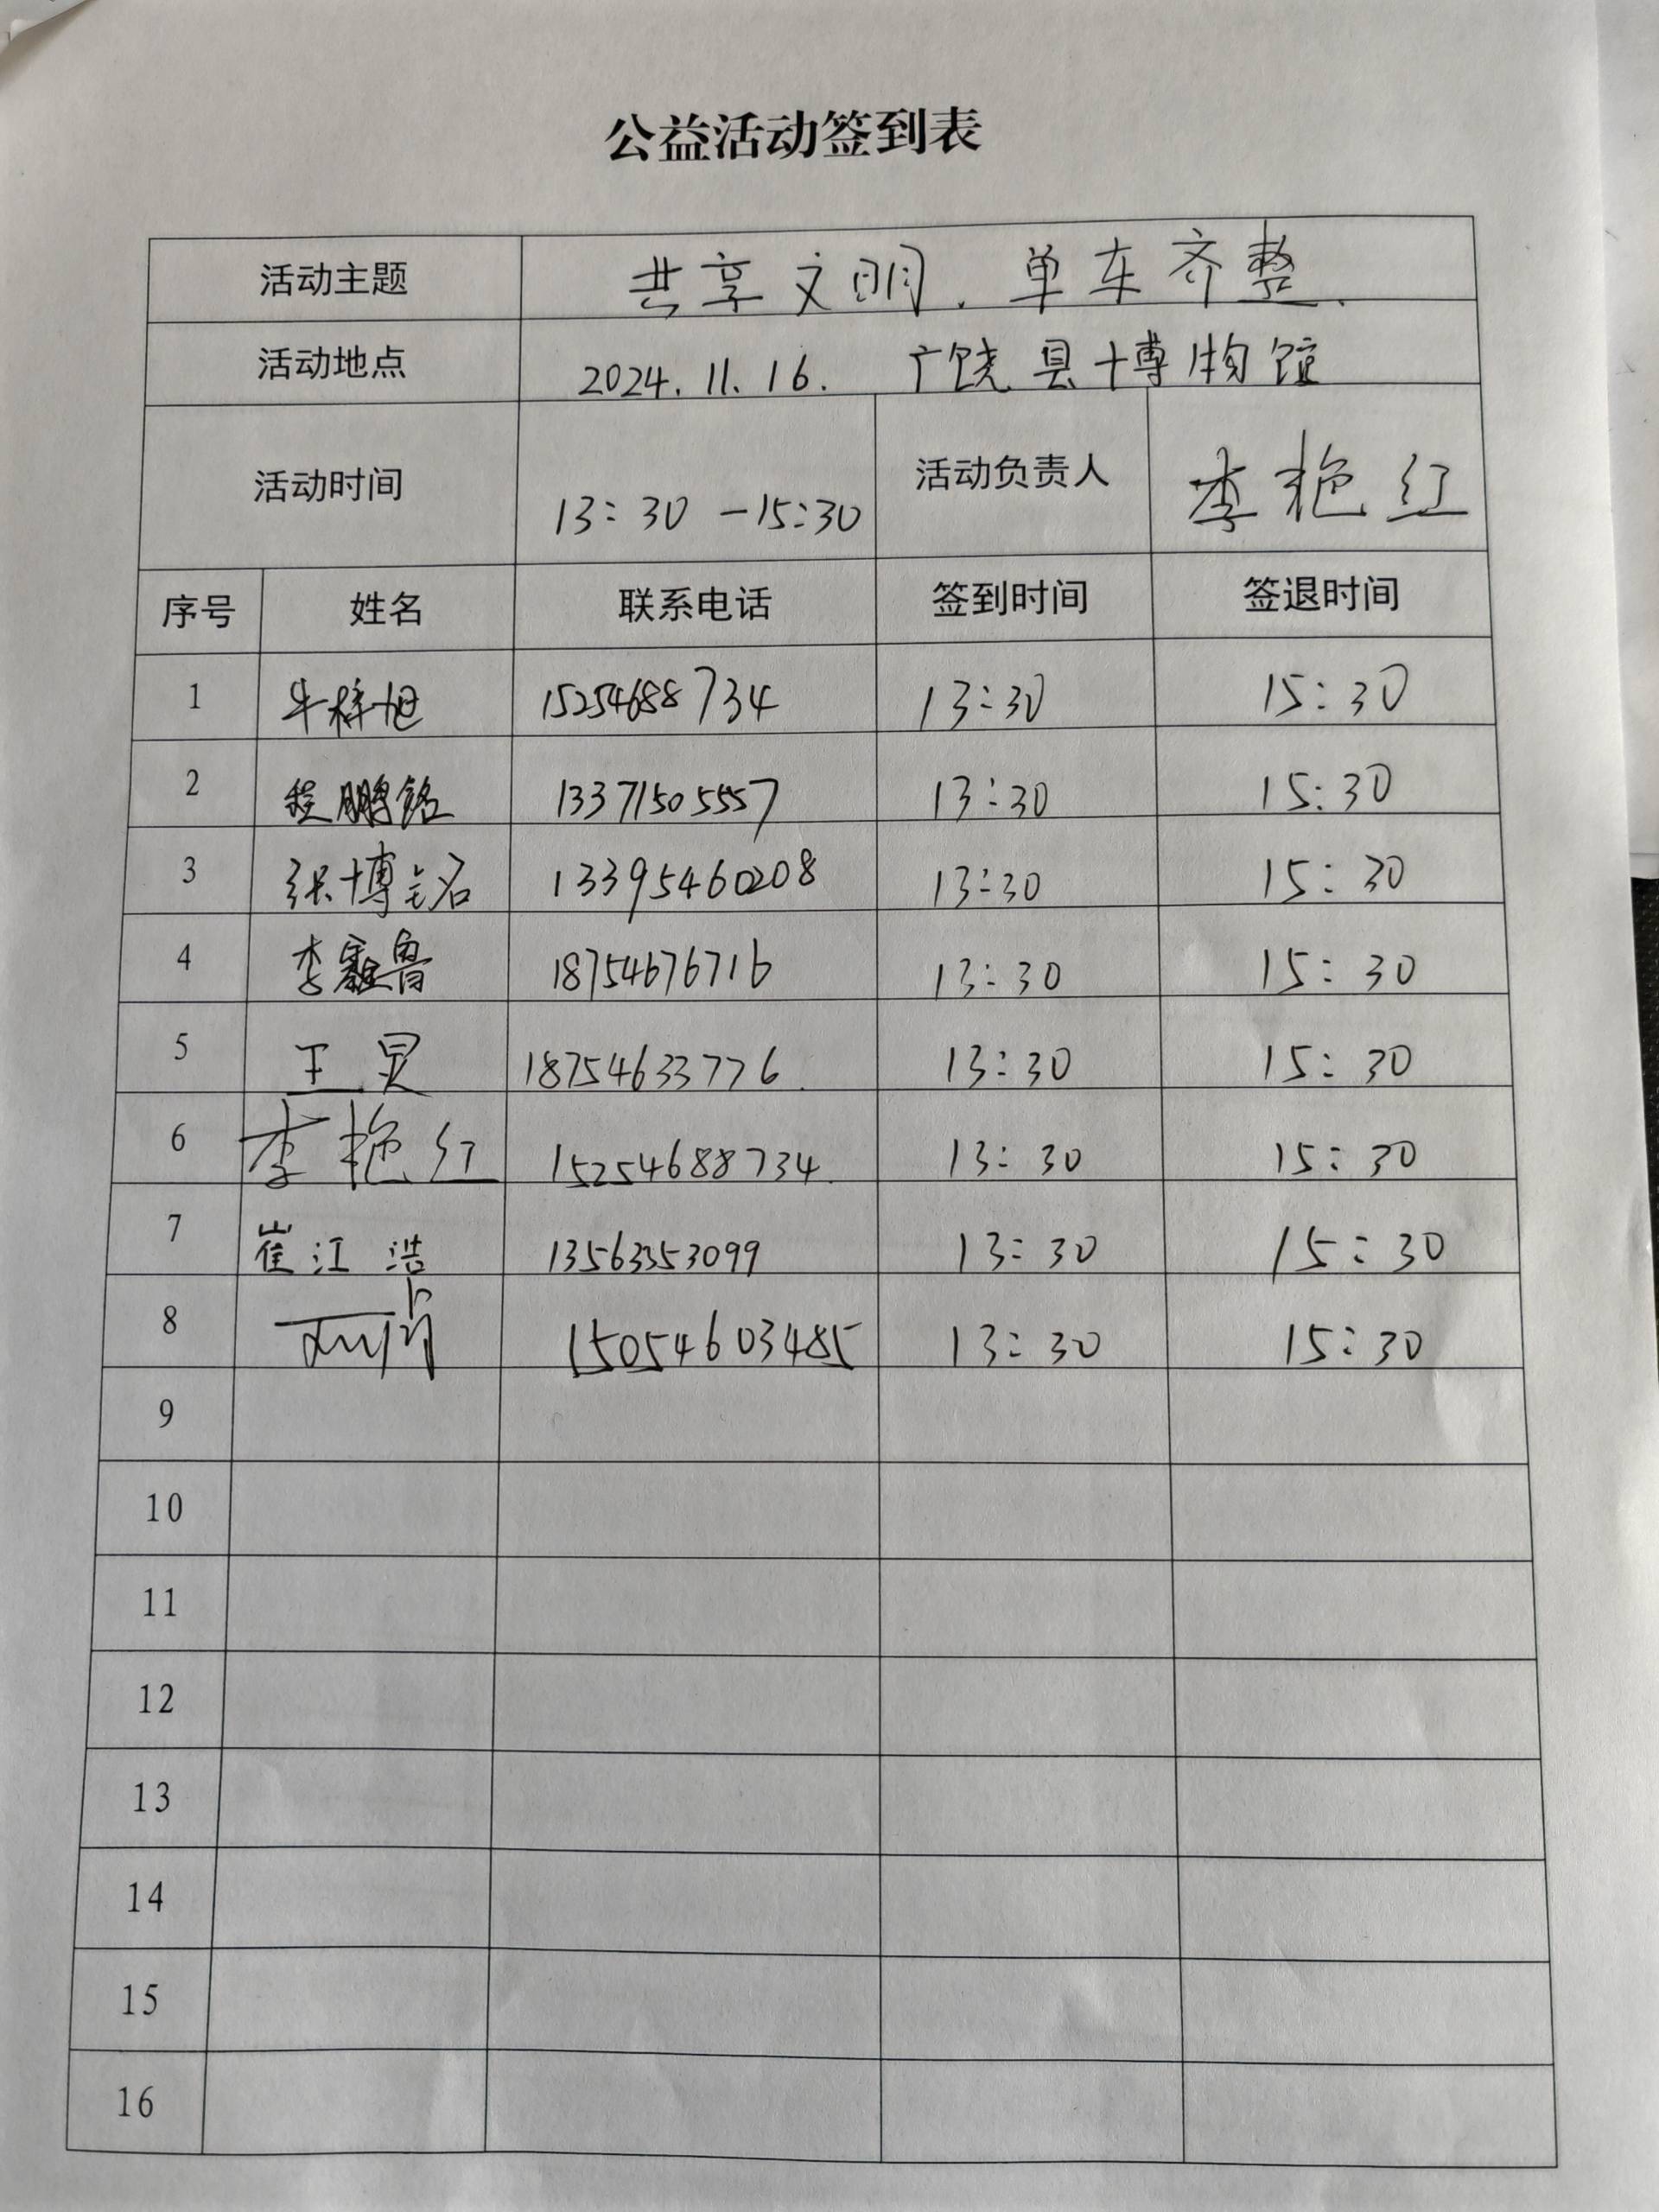 公益活动签到表
活动主题 共享文明,单车齐整.
活动地点 2024.11.16. 广饶县博物馆
活动时间 13:30-15:30 活动负责人 李艳红
序号 姓名 联系电话 签到时间 签退时间
1 牛梓旭 15254688734 13:30 15:30
2 程鹏铭 13371505557 13:30 15:30
3 张博铭 13395460208 13:30 15:30
4 李 鲁 18754676716 13:30 15:30
5 王 18754633776 13:30 15:30
6 李艳红 15254688734 13:30 15:30
7 崔江浩 13563353099 13:30 15:30
8 15054603485 13:30 15:30
9
10
11
12
13
14
15
16